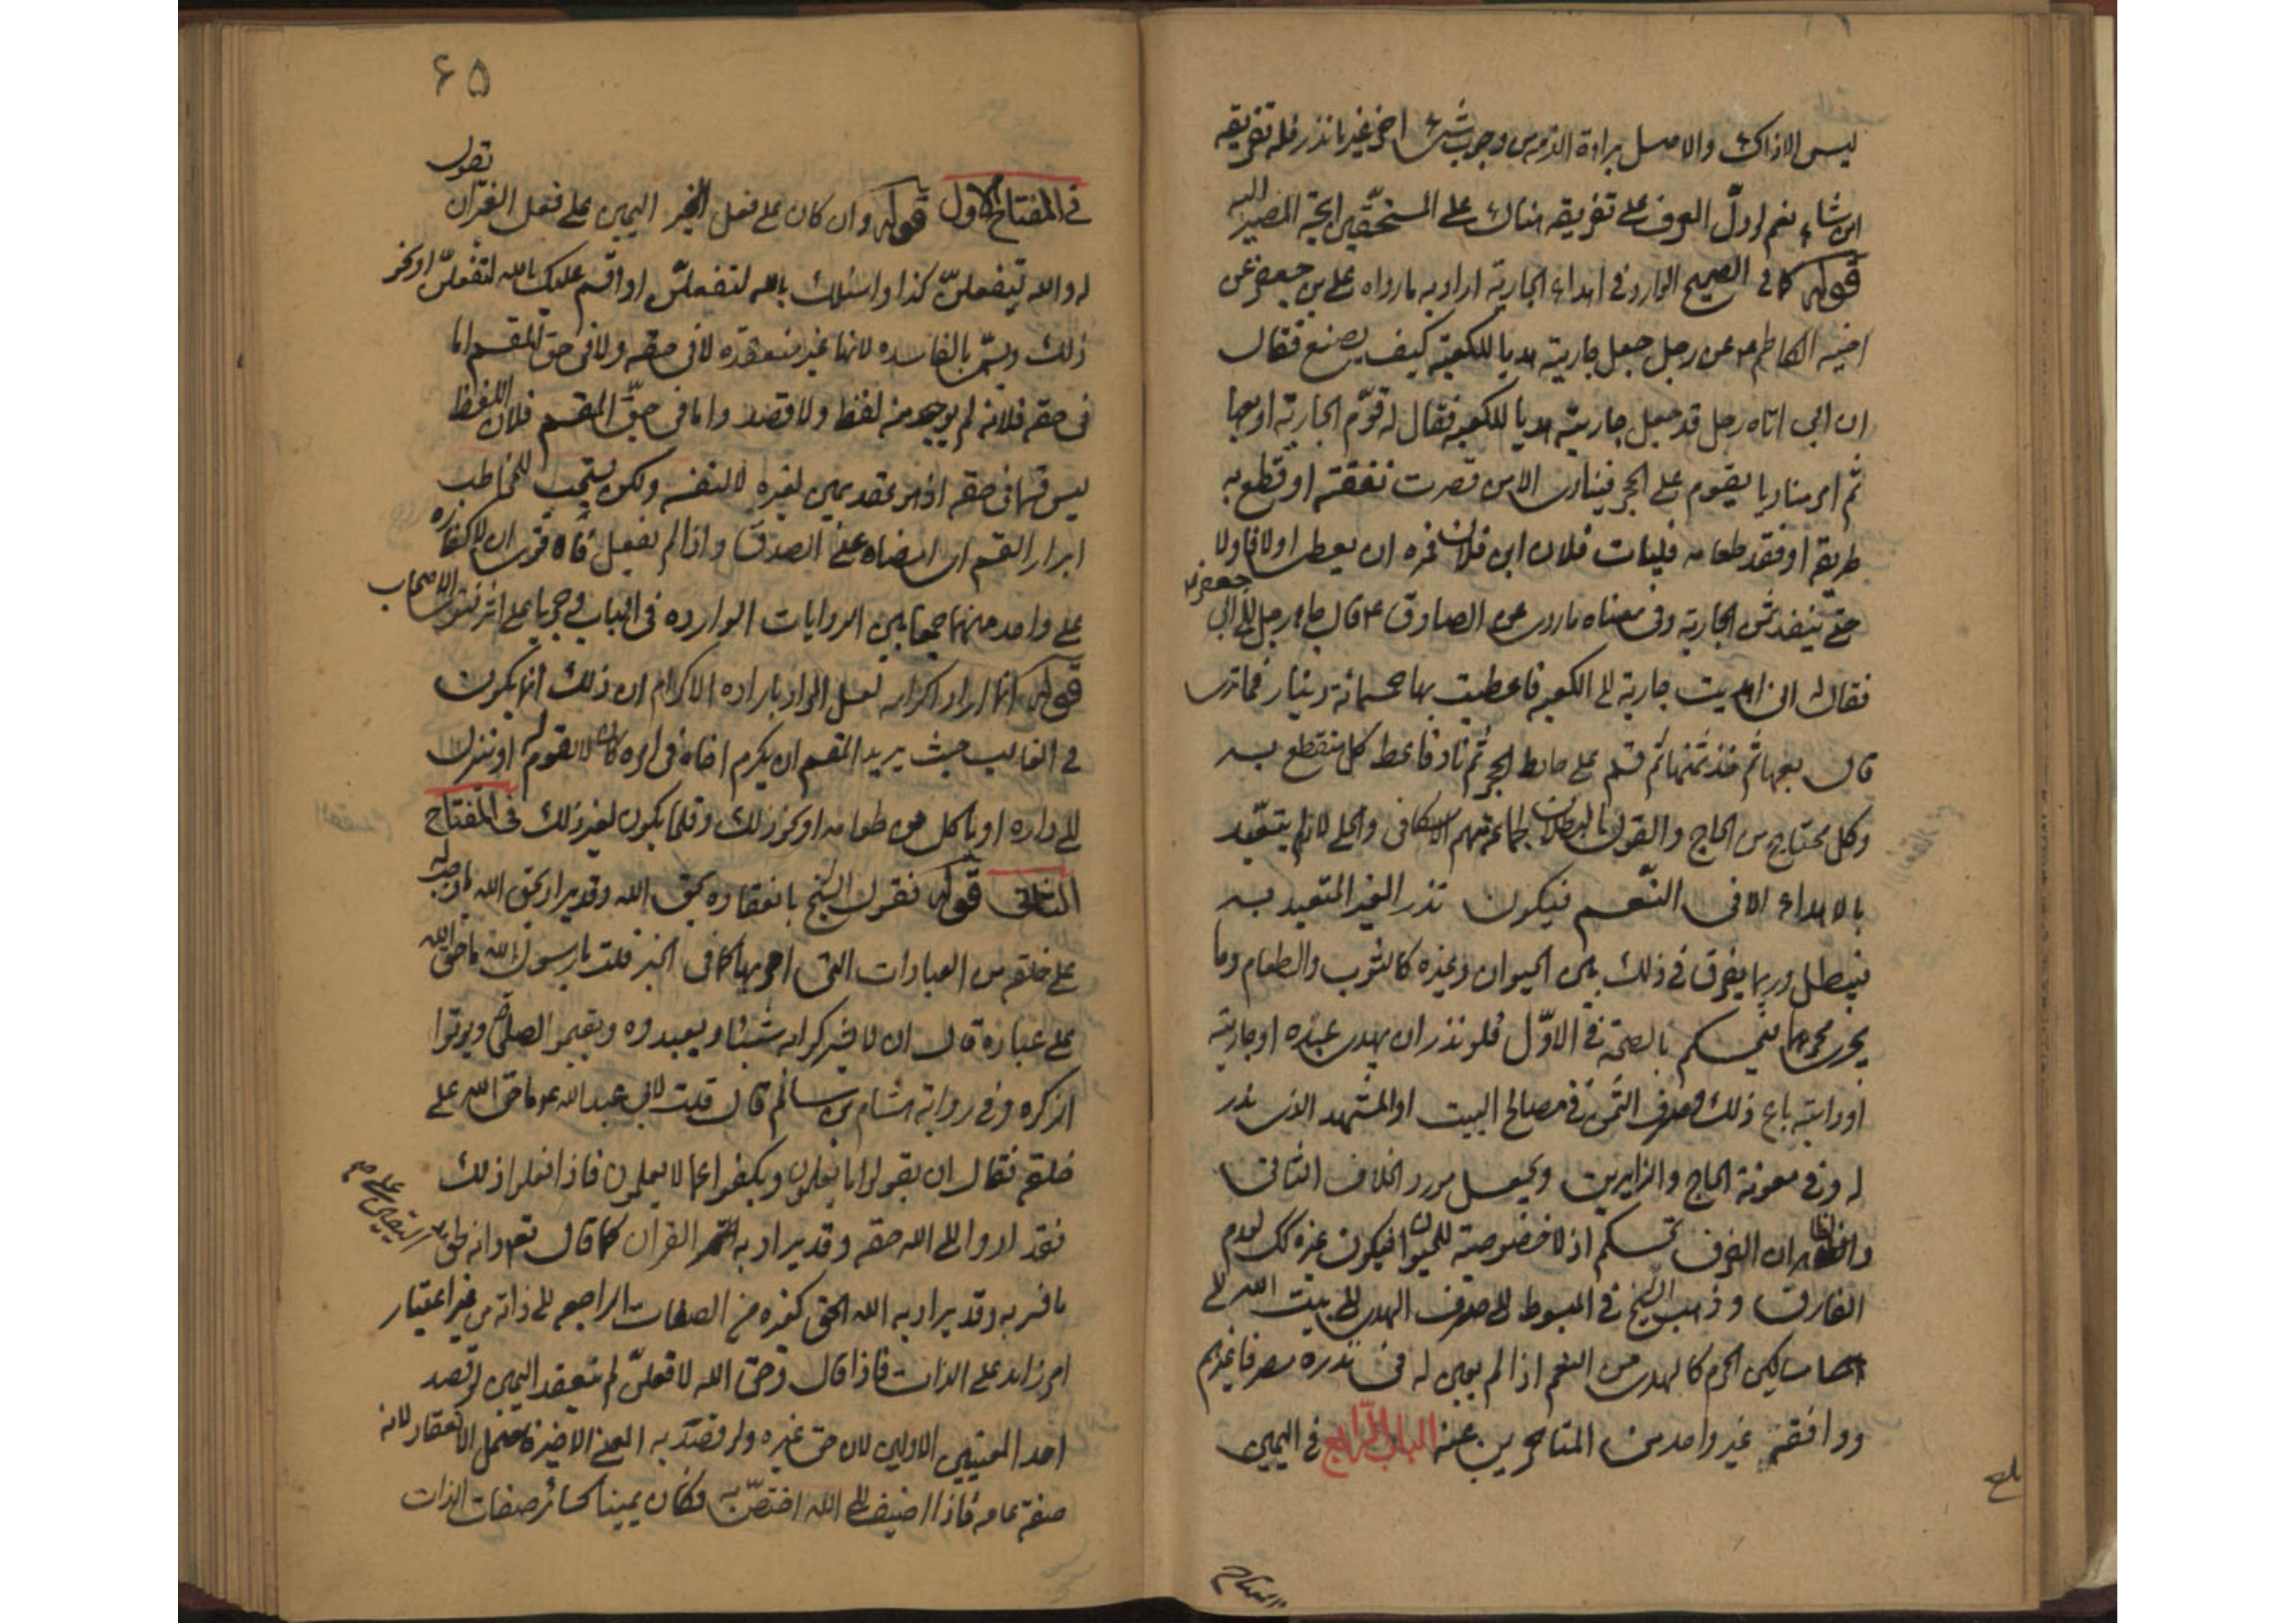 ليس الا ذاك والاصل براءة الذمه من وجوب شئ اخر غير ما نذر فله تفريقه
اين شاء نعم لو دل العرف على تفريقه هناك على المستحقين اتجه المصير اليه
قوله كما فى الصحيح الوارد فى اهداء الجارية اراد به ما رواه على بن جعفر عن
اخيه الكاظم ع عن رجل جعل جاريته هديا للكعبة كيف يصنع فقال
ان ابى اتاه رجل قد جعل جاريته هديا للكعبه فقال له قوّم الجارية او بعها
ثم امر مناديا يقوم على الحجر فينادى الا من قصرت نفقته او قطع به
طريقه او نفد طعامه فليات فلان ابن فلان فمره ان يعطى اولا فاولا
حتى ينفد ثمن الجارية وفى معناه ما روى عن الصادق ع قال جاء رجل الى ابى جعفر ع
فقال له انى اهديت جارية الى الكعبه فاعطيت بها خمسمائة دينار فما ترى
قال بعها ثم خذ ثمنها ثم قم على حايط الحجر ثم ناد فاعط كل منقطع به
وكل محتاج من الحاج والقول بالبطلان لجماعة منهم الاسكافى والحلى لانه لم يتعبد
بالاهداء الا فى النّعم فيكون نذر الغير المتعبد به
فيبطل وربما يفرق فى ذلك بين الحيوان وغيره كالثوب والطعام وما
يجرى مجراها فيحكم بالصحة فى الاوّل فلو نذر ان يهدى عبده او جاريته
او دابته باع ذلك وصرف الثمن فى مصالح البيت او المشهد الذى نذر
له وفى معونة الحاج والزايرين ويجعل مورد الخلاف الثانى
والظاهر ان الفرق تحكم اذ لا خصوصية للحيوان فيكون غيره كك لعدم
الفارق وذهب الشيخ فى المبسوط الى صرف الهدى الى بيت الله الى
مساكين الحرم كالهدى من النعم اذا لم يعين له فى نذره مصرفا غيرهم
ووافقه غير واحد من المتاخرين عنه الباب الرّابع فى اليمين
۶۵
فى المفتاح الاول قوله وان كان على فعل الغير اليمين على فعل الغير ان تقول
له والله لتفعلنّ كذا واسئلك بالله لتفعلنّ او اقسم عليك بالله لتفعلنّ او نحو
ذلك ويسمّى بالفاسده لانها غير منعقده لا فى حقه ولا فى حق المقسم اما
فى حقه فلانه لم يوجد منه لفظ ولا قصد واما فى حقّ المقسم فلان اللفظ
ليس قسما فى حقه اذ هو عقد يمين لغيره لا لنفسه ولكن يستحب للمخاطب
ابرار القسم اى امضاه على الصدق واذا لم يفعل فالاقوى ان لا كفاره
على واحد منهما جمعا بين الروايات الوارده فى الباب وجريا على اثر فتوى الاصحاب
قوله انما اراد اكرامه لعل المراد باراده الاكرام ان ذلك انما يكون
فى الغالب حيث يريد المقسم ان يكرم اخاه فى امره كان لا يقوم له او ينزل
الى داره او ياكل من طعامه او نحو ذلك وقلما يكون لغير ذلك فى المفتاح
الثانى قوله نقول الشيخ بانعقاده بحق الله وقد يراد بحق الله ما يجب له
على خلقه من العبادات التى امر بها كما فى الخبر قلت يا رسول الله ما حق الله
على عباده قال ان لا يشركوا به شيئا ويعبدوه ويقيموا الصلوة ويوتوا
الزكوه وفى رواية هشام بن سالم قال قلت لابى عبد الله ع ما حق الله على
خلقه فقال ان يقولوا ما يعلمون ويكفوا عما لا يعلمون فاذا فعلوا ذلك
فقد ادوا الى الله حقه وقد يراد به القران كما قال تعالى وانه لحق اليقين على ما
ما فسر به وقد يراد به الله الحق كغيره من الصفات الراجعه الى ذاته من غير اعتبار
امر زايد على الذات فاذا قال وحق الله لافعلنّ لم ينعقد اليمين لو قصد
احد المعنيين الاولين لانه حق غيره ولو قصد به المعنى الاخير فاحتمل الانعقاد لانه
صفة عامه فاذا اضيف الى الله اختصّ به فكان يمينا كسائر صفات الذات